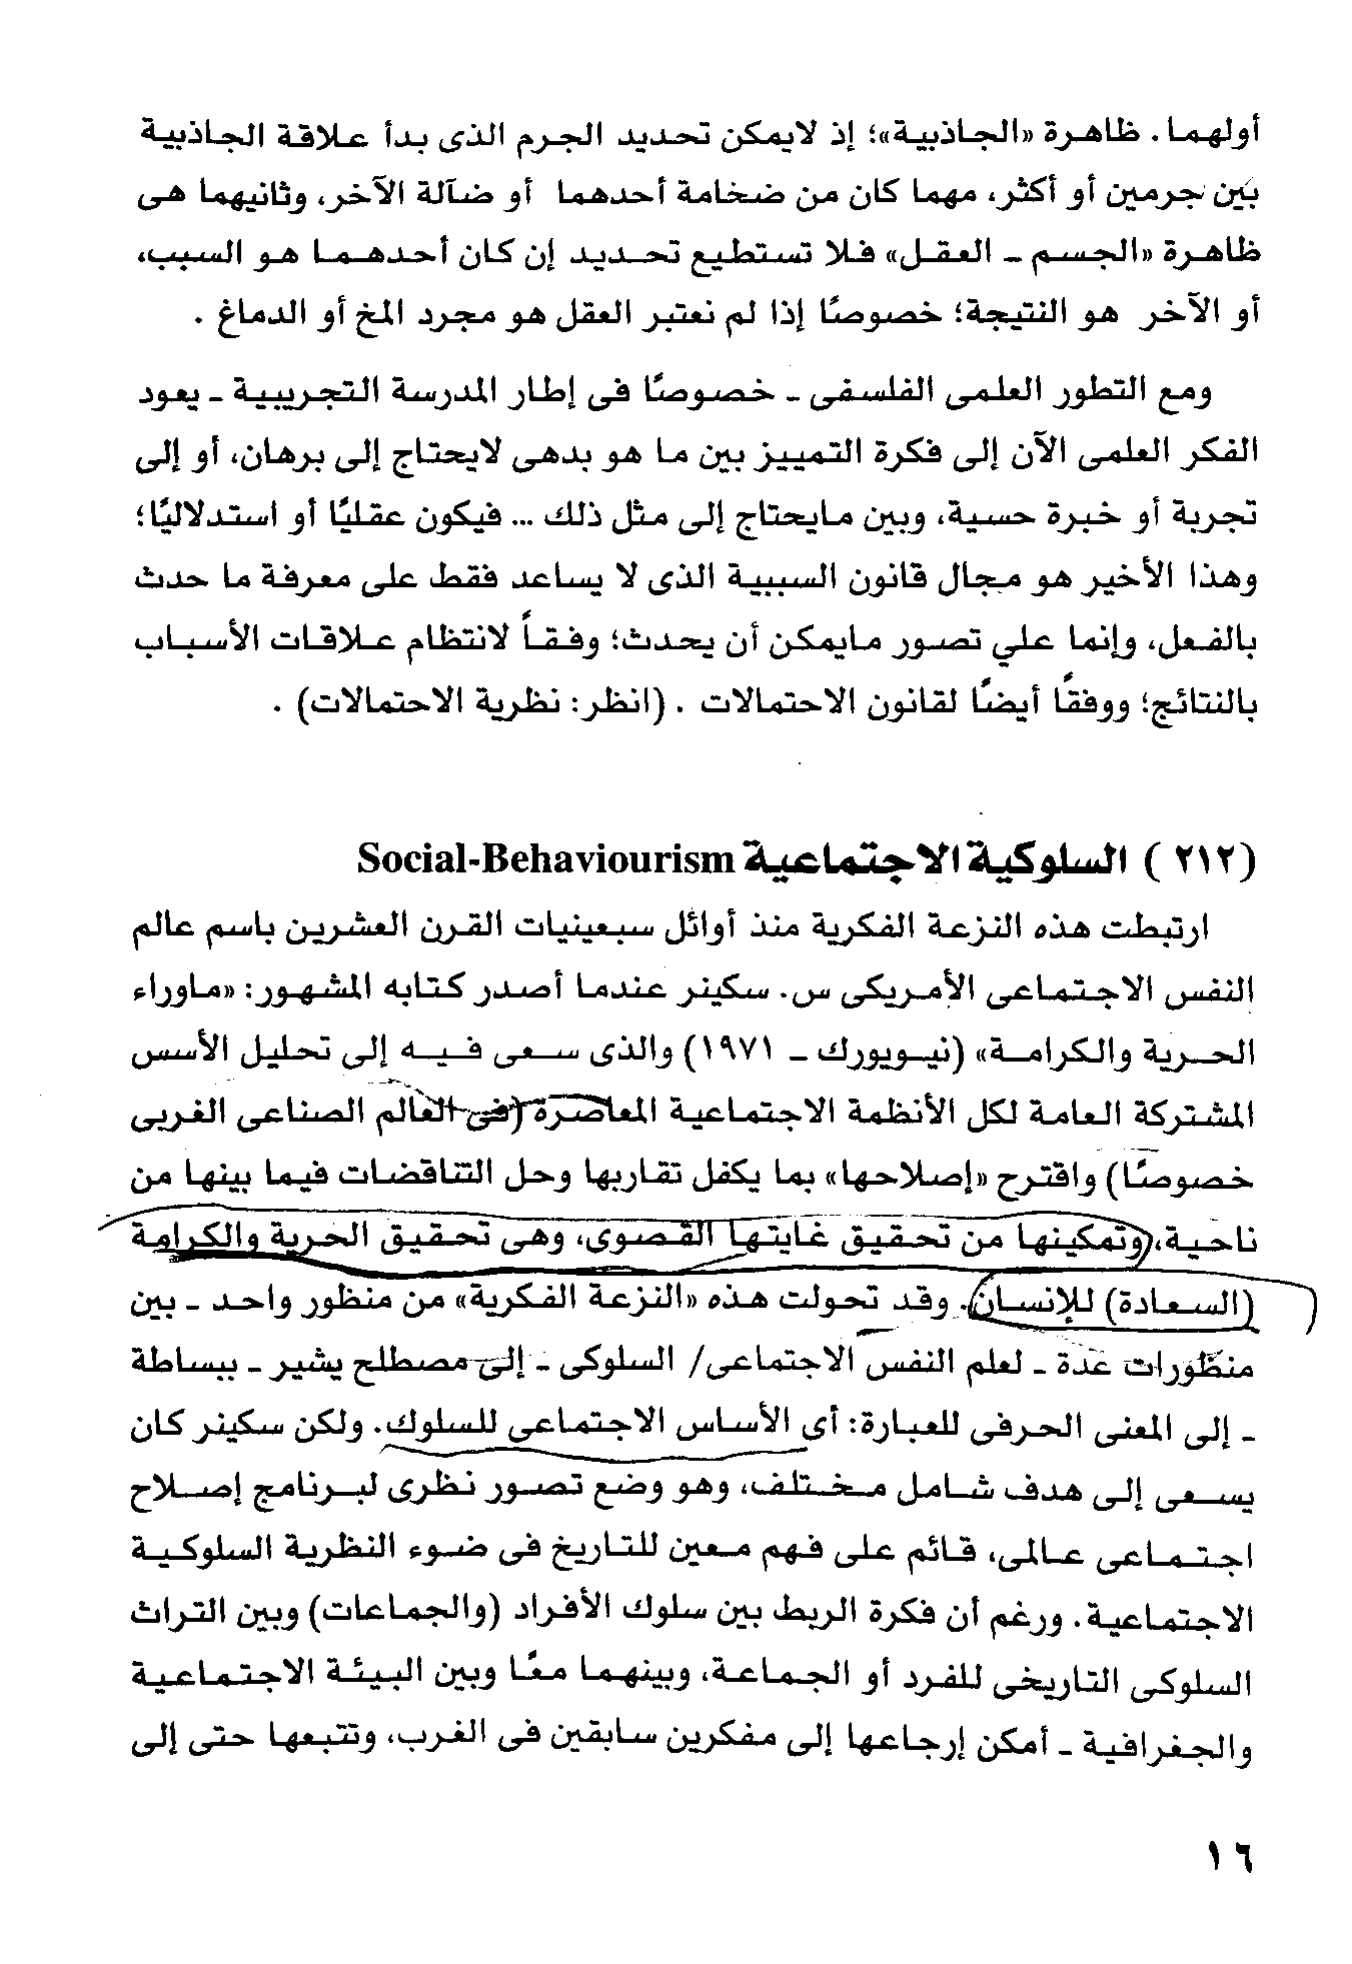 أولهما. ظاهرة «الجاذبية»؛ إذ لايمكن تحديد الجرم الذى بدأ علاقة الجاذبية
بين جرمين أو أكثر، مهما كان من ضخامة أحدهما أو ضآلة الآخر، وثانيهما هى
ظاهرة «الجسم - العقل» فلا تستطيع تحديد إن كان أحدهما هو السبب،
أو الآخر هو النتيجة؛ خصوصًا إذا لم نعتبر العقل هو مجرد المخ أو الدماغ .
ومع التطور العلمى الفلسفى - خصوصًا فى إطار المدرسة التجريبية - يعود
الفكر العلمى الآن إلى فكرة التمييز بين ما هو بدهى لايحتاج إلى برهان، أو إلى
تجربة أو خبرة حسية، وبين مايحتاج إلى مثل ذلك ... فيكون عقليًا أو استدلاليًا؛
وهذا الأخير هو مجال قانون السببية الذى لا يساعد فقط على معرفة ما حدث
بالفعل، وإنما علي تصور مايمكن أن يحدث؛ وفقاً لانتظام علاقات الأسباب
بالنتائج؛ ووفقًا أيضًا لقانون الاحتمالات . (انظر: نظرية الاحتمالات) .
(٢١٢ ) السلوكية الاجتماعية Social-Behaviourism
ارتبطت هذه النزعة الفكرية منذ أوائل سبعينيات القرن العشرين باسم عالم
النفس الاجتماعى الأمريكى س. سكينر عندما أصدر كتابه المشهور: «ماوراء
الحرية والكرامة» (نيويورك - ١٩٧١) والذى سعى فيه إلى تحليل الأسس
المشتركة العامة لكل الأنظمة الاجتماعية المعاصرة (فى العالم الصناعى الغربى
خصوصًا) واقترح «إصلاحها» بما يكفل تقاربها وحل التناقضات فيما بينها من
ناحية، وتمكينها من تحقيق غايتها القصوى، وهى تحقيق الحرية والكرامة
(السعادة) للإنسان. وقد تحولت هذه «النزعة الفكرية» من منظور واحد - بين
منظورات عدة - لعلم النفس الاجتماعى/ السلوكى - إلى مصطلح يشير - ببساطة
- إلى المعنى الحرفى للعبارة: أى الأساس الاجتماعى للسلوك. ولكن سكينر كان
يسعى إلى هدف شامل مختلف، وهو وضع تصور نظرى لبرنامج إصلاح
اجتماعى عالمى، قائم على فهم معين للتاريخ فى ضوء النظرية السلوكية
الاجتماعية. ورغم أن فكرة الربط بين سلوك الأفراد (والجماعات) وبين التراث
السلوكى التاريخى للفرد أو الجماعة، وبينهما معًا وبين البيئة الاجتماعية
والجغرافية - أمكن إرجاعها إلى مفكرين سابقين فى الغرب، وتتبعها حتى إلى
١٦